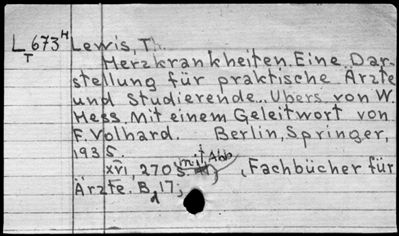 L673H Lewis, Th.
T Herzkrankheiten. Eine Dar-
stellung für praktische Ärzte
und Studierende... Übers. von W.
Hess. Mit einem Geleitwort von
F. Volhard. Berlin, Springer,
1935.
xvi, 270 S. mit Abb. , Fachbücher für
Ärzte. Bd 17;